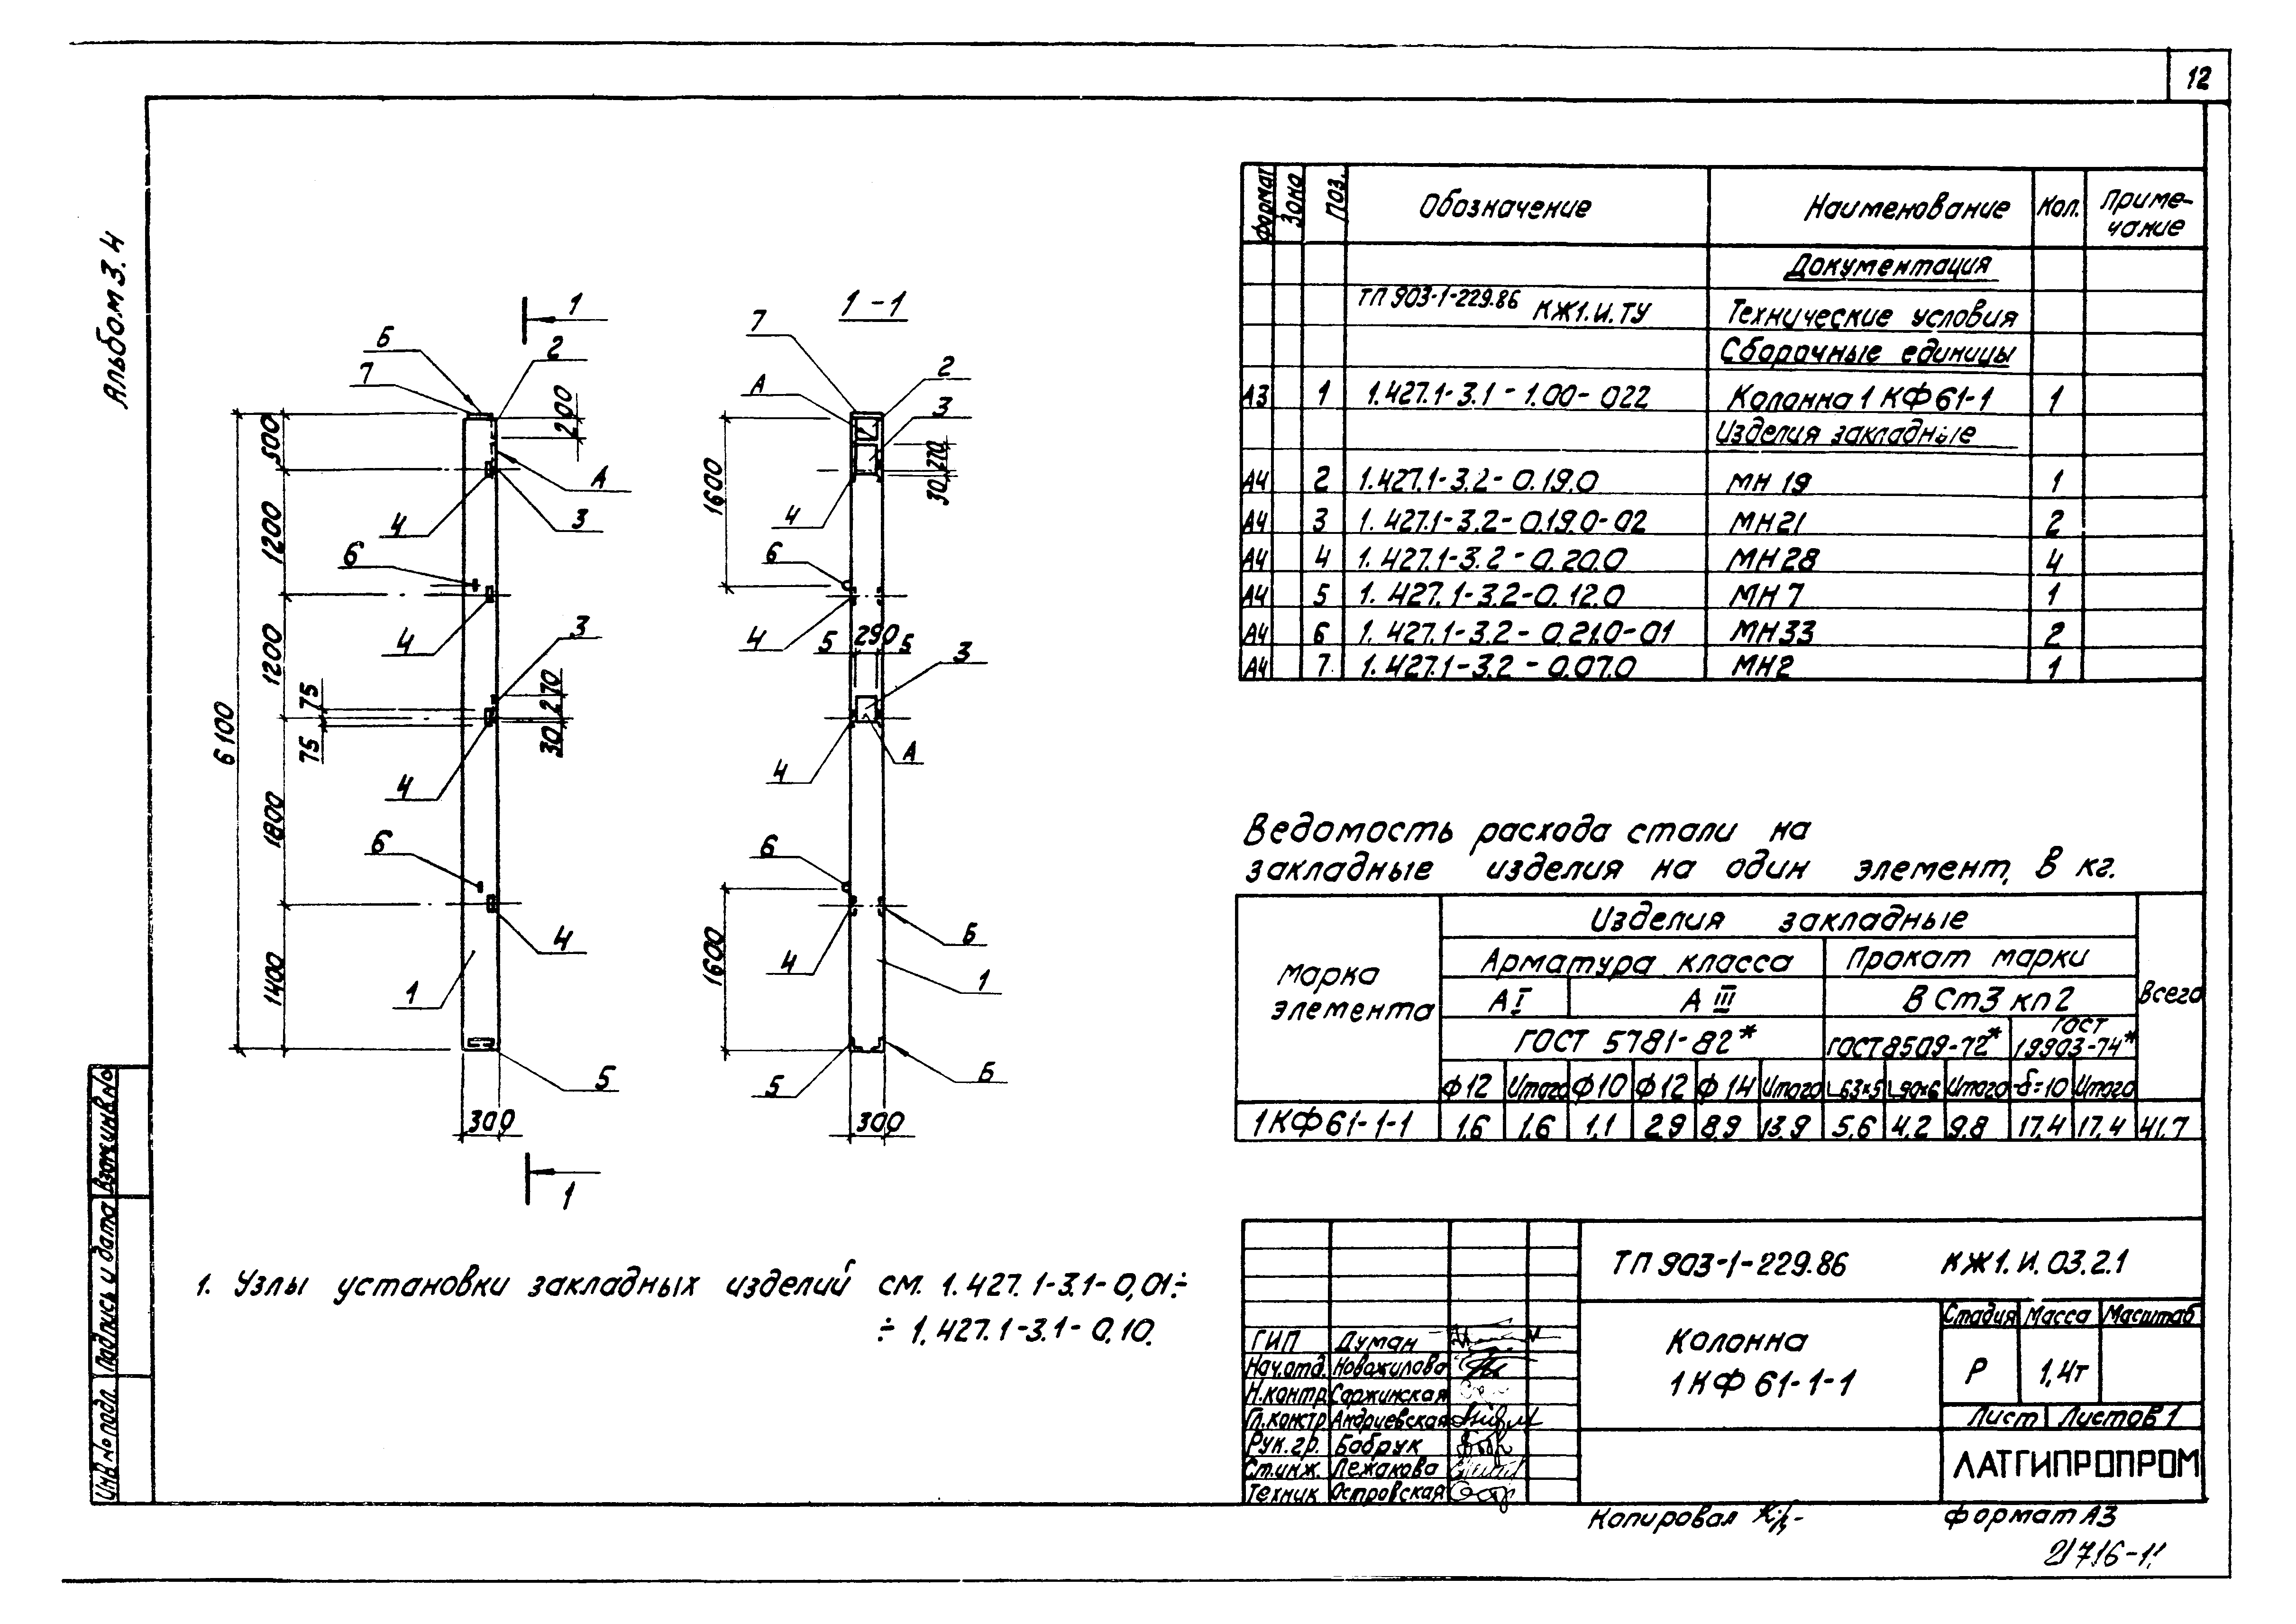 12
Альбом 3.4
1
1-1
Б
7
2
200
А
3
4
6
500
1200
1200
1800
1400
6100
75
75
270
30
3
4
4
6
4
1
5
300
1
7
А
2
3
270
30
1600
4
6
4
5 290 5
3
А
4
6
Б
4
1
1600
5
Б
300
Формат Зона Поз. Обозначение Наименование Кол. Приме-
чание
Документация
ТП 903-1-229.86 КЖ1.И.ТУ Технические условия
Сборочные единицы
А3 1 1.427.1-3.1-1.00-022 Колонна 1КФ61-1 1
Изделия закладные
А4 2 1.427.1-3.2-0.19.0 МН 19 1
А4 3 1.427.1-3.2-0.19.0-02 МН21 2
А4 4 1.427.1-3.2-0.20.0 МН28 4
А4 5 1.427.1-3.2-0.12.0 МН7 1
А4 6 1.427.1-3.2-0.21.0-01 МН33 2
А4 7 1.427.1-3.2-0.07.0 МН2 1
Ведомость расхода стали на
закладные изделия на один элемент, в кг.
Марка
элемента
Изделия закладные
Всего
Арматура класса Прокат марки
А I А III ВСт3 кп2
ГОСТ 5781-82* ГОСТ 8509-72* ГОСТ
19903-74*
ф12 Итого ф10 ф12 ф14 Итого L63×5 L90×6 Итого -δ=10 Итого
1КФ61-1-1 1,6 1,6 1,1 2,9 8,9 13,9 5,6 4,2 9,8 17,4 17,4 41,7
1. Узлы установки закладных изделий см. 1.427.1-3.1-0,01÷
÷ 1.427.1-3.1-0,10.
ТП 903-1-229.86 КЖ1.И.03.2.1
Колонна
1КФ 61-1-1
Стадия Масса Масштаб
Р 1,4т
Лист Листов 1
ЛАТГИПРОПРОМ
ГИП Думан
Нач.отд. Новожилова
Н.контр. Саржинская
Гл.констр. Андриевская
Рук.гр. Бобрук
Ст.инж. Лежакова
Техник Островская
Инв.№подл. Подпись и дата Взам.инв.№
Копировал
формат А3
21716-11